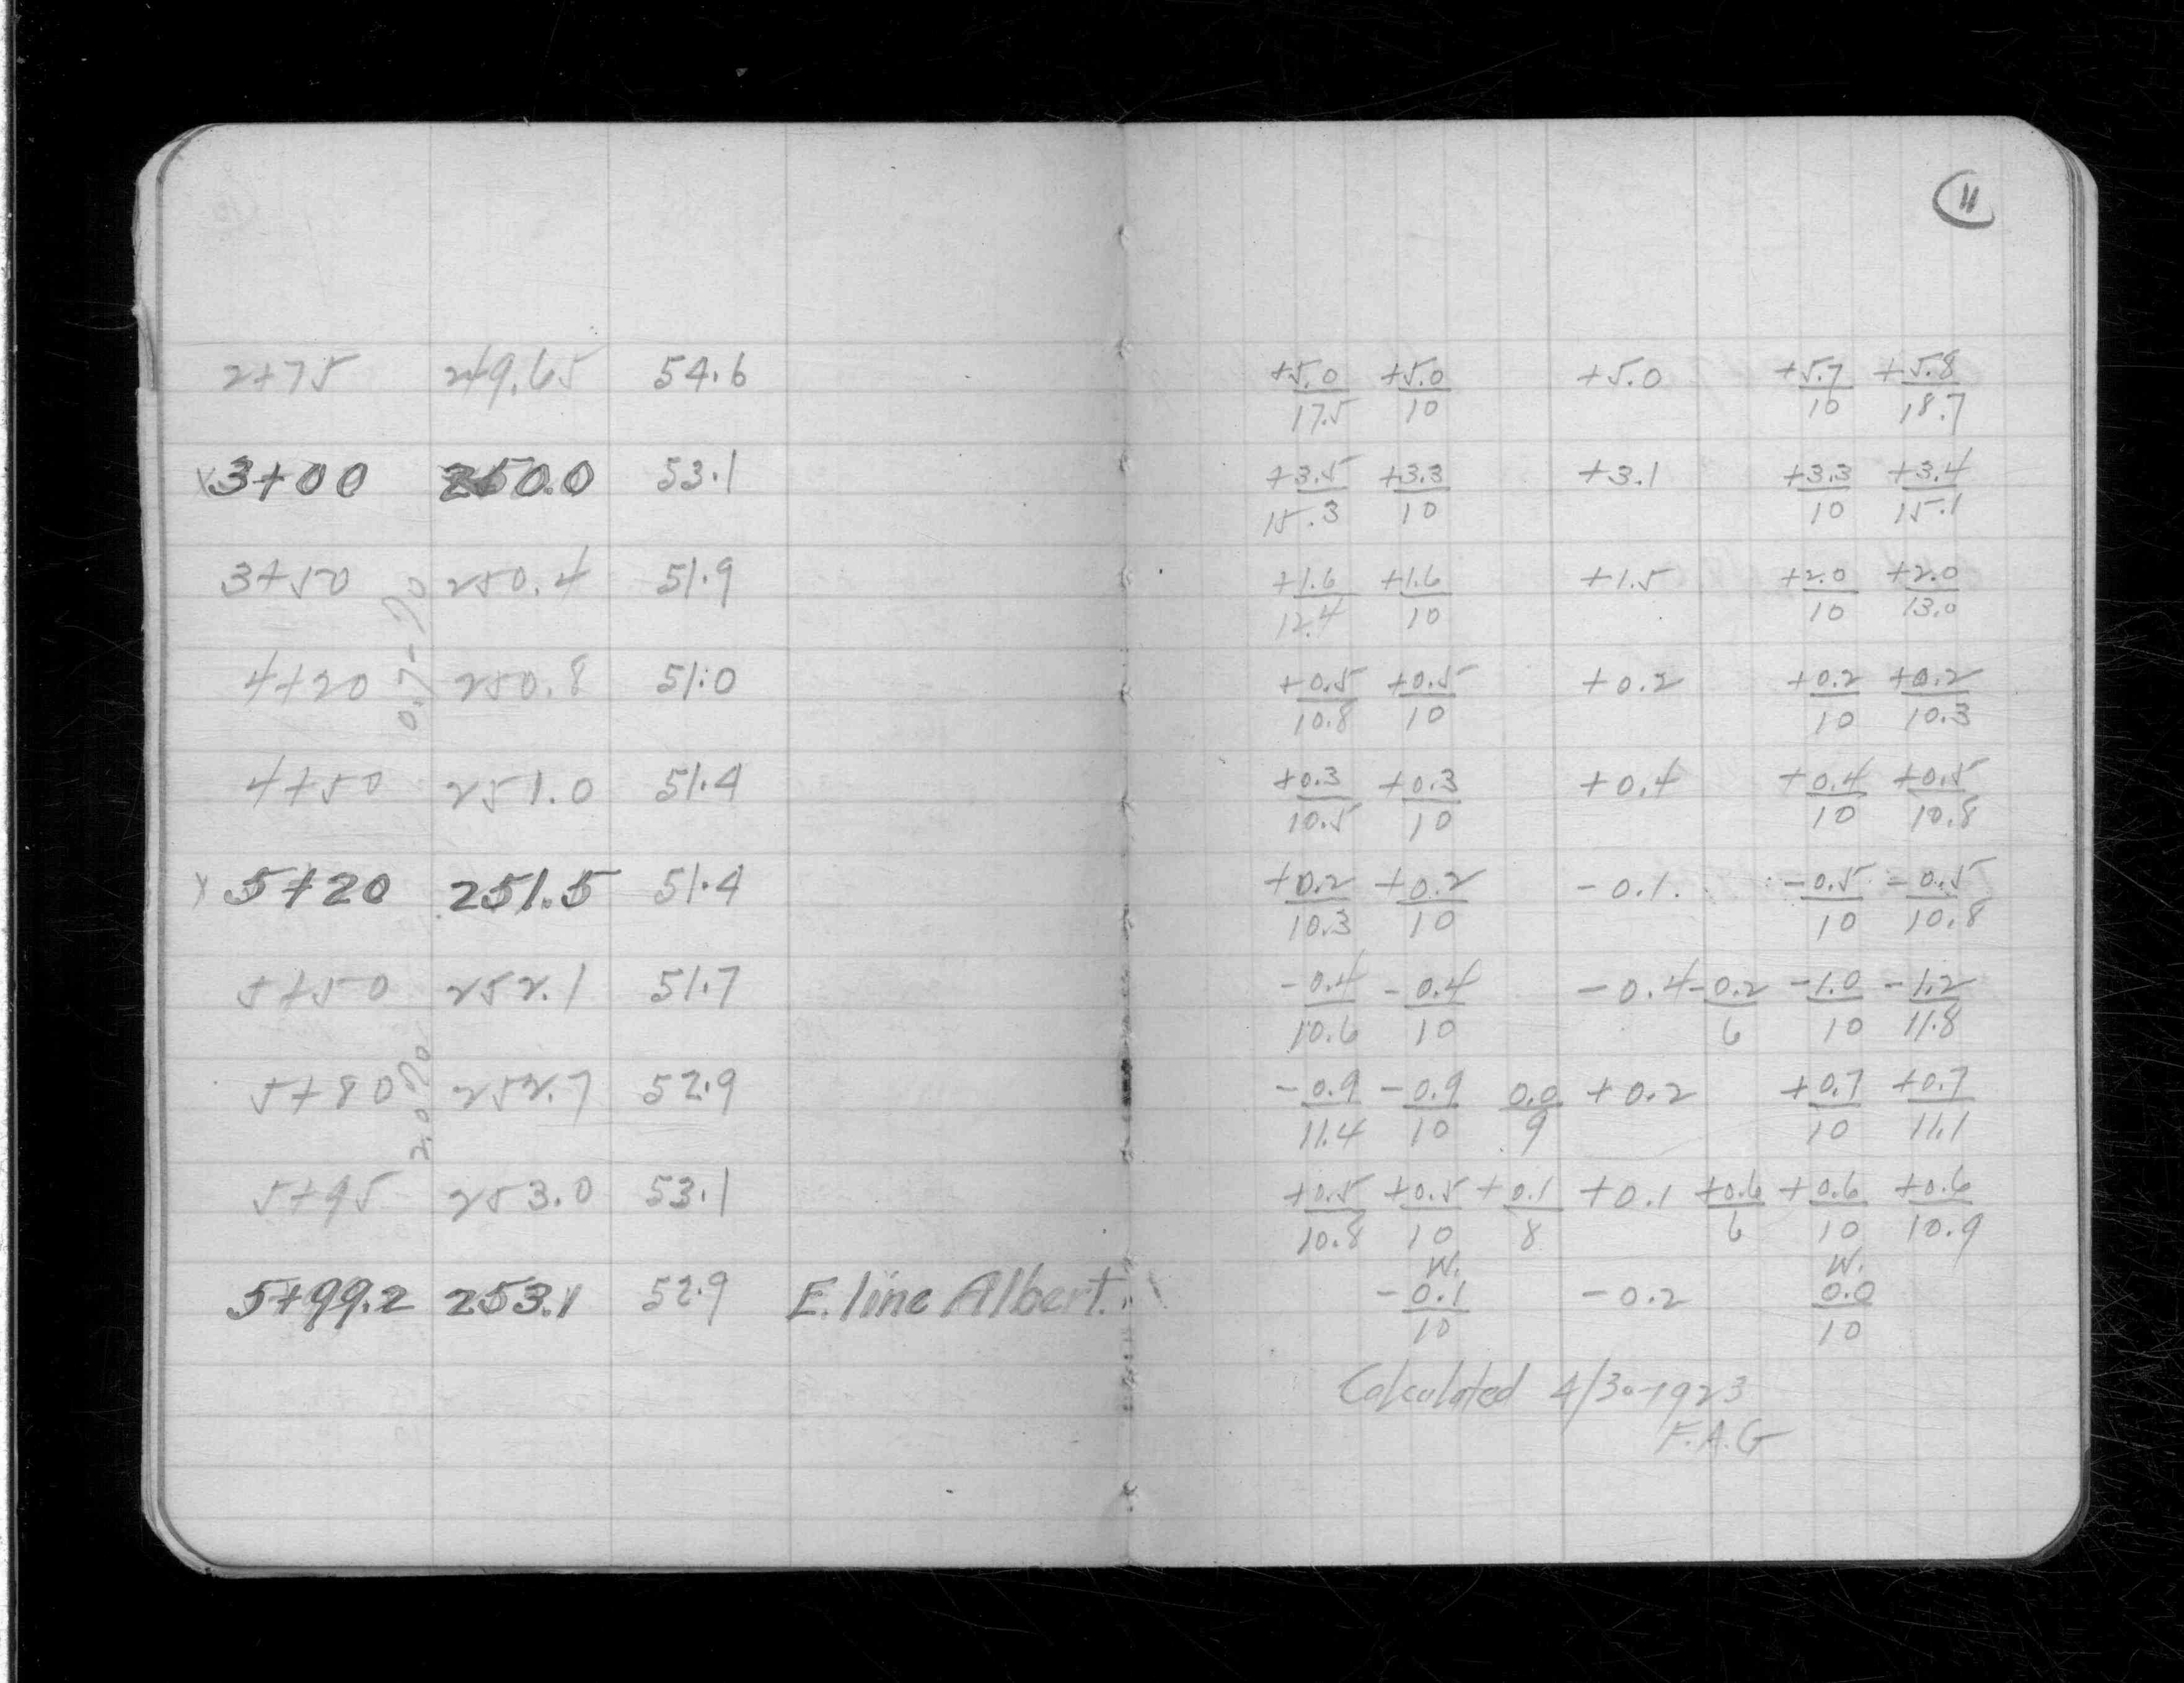 11
2+75 249.65 54.6 +5.0/17.5 +5.0/10 +5.0 +5.7/10 +5.8/18.7
x3+00 250.0 53.1 +3.5/15.3 +3.3/10 +3.1 +3.3/10 +3.4/15.1
3+50 250.4 51.9 +1.6/12.4 +1.6/10 +1.5 +2.0/10 +2.0/13.0
0.7-%
4+20 250.8 51.0 +0.5/10.8 +0.5/10 +0.2 +0.2/10 +0.2/10.3
4+50 251.0 51.4 +0.3/10.5 +0.3/10 +0.4 +0.4/10 +0.5/10.8
x 5+20 251.5 51.4 +0.2/10.3 +0.2/10 -0.1 -0.5/10 -0.5/10.8
5+50 252.1 51.7 -0.4/10.6 -0.4/10 -0.4 -0.2/6 -1.0/10 -1.2/11.8
2.0%
5+80 252.7 52.9 -0.9/11.4 -0.9/10 0.0/9 +0.2 +0.7/10 +0.7/11.1
5+95 253.0 53.1 +0.5/10.8 +0.5/10 +0.1/8 +0.1 +0.6/6 +0.6/10 +0.6/10.9
W. W.
5+99.2 253.1 52.9 E. line Albert. -0.1/10 -0.2 0.0/10
Calculated 4/30-1923
F.A.G